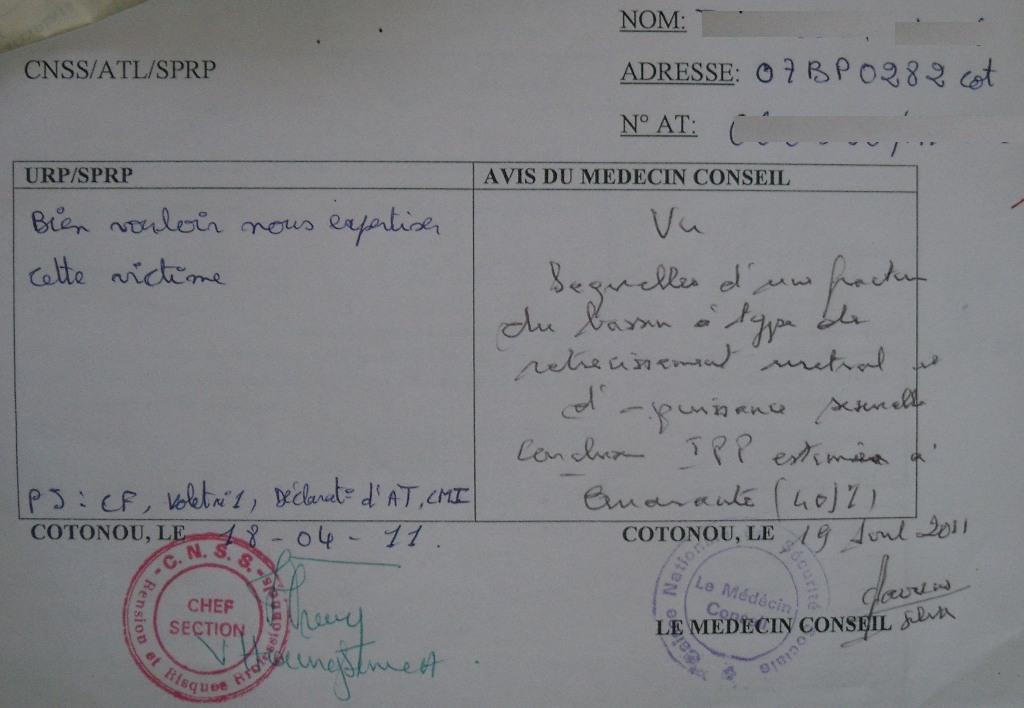 NOM:
CNSS/ATL/SPRP
ADRESSE: 07BP0282 cot
N° AT:
URP/SPRP
Bien vouloir nous expertiser
cette victime
PJ: CF, Volet n°1, Déclarat° d'AT, CMI
COTONOU, LE 18-04-11.
C.N.S.S.
CHEF
SECTION
Pension et Risques Professionnels
AVIS DU MEDECIN CONSEIL
Vu
Sequelles d'une fracture
du bassin à type de
retrecissement uretral
d'-puissance sexuelle
IPP estimée à
Quarante (40)%
COTONOU, LE 19 Avril 2011
Caisse Nationale Sécurité Sociale
Le Médécin
Conseil
LE MEDECIN CONSEIL